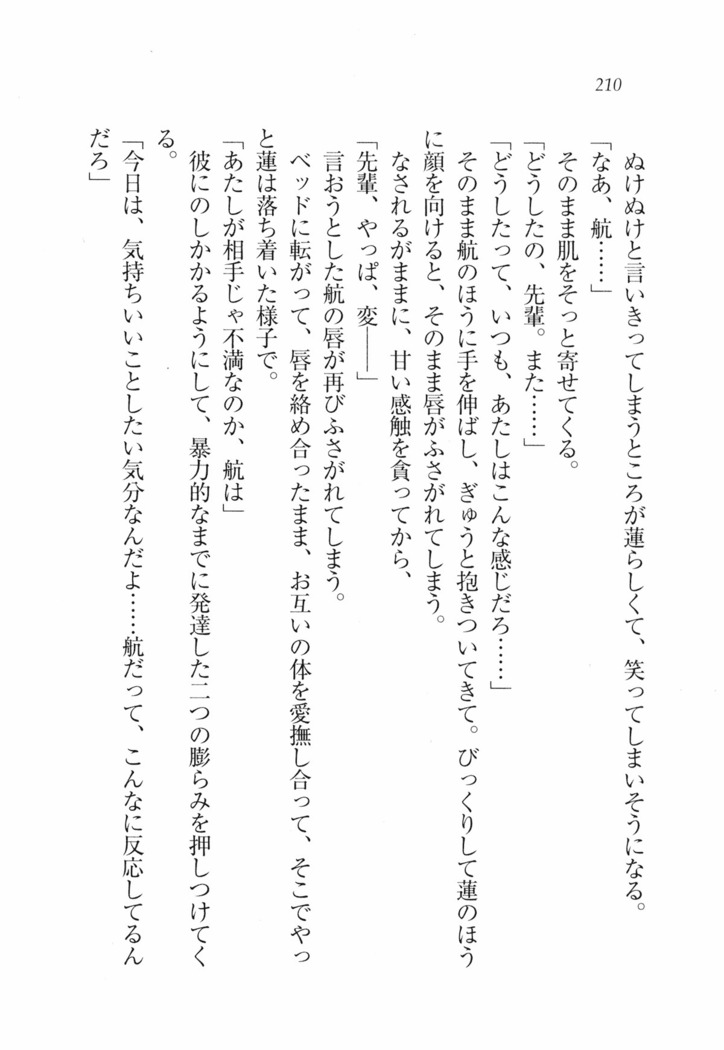 210
ぬけぬけと言いきってしまうところが蓮らしくて、笑ってしまいそうになる。
「なあ、航……」
そのまま肌をそっと寄せてくる。
「どうしたの、先輩。また……」
「どうしたって、いつも、あたしはこんな感じだろ……」
そのまま航のほうに手を伸ばし、ぎゅうと抱きついてきて。びっくりして蓮のほう
に顔を向けると、そのまま唇がふさがれてしまう。
なされるがままに、甘い感触を貪ってから、
「先輩、やっぱ、変――」
言おうとした航の唇が再びふさがれてしまう。
ベッドに転がって、唇を絡め合ったまま、お互いの体を愛撫し合って、そこでやっ
と蓮は落ち着いた様子で。
「あたしが相手じゃ不満なのか、航は」
彼にのしかかるようにして、暴力的なまでに発達した二つの膨らみを押しつけてく
る。
「今日は、気持ちいいことしたい気分なんだよ……航だって、こんなに反応してるん
だろ」